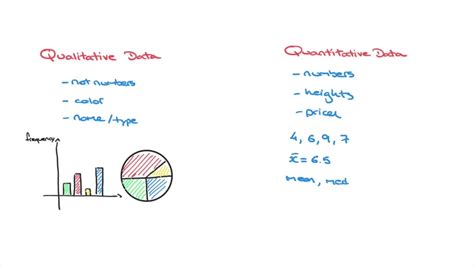 Qualitative Data
- not numbers
- color
- name/type
frequency
Quantitative Data
- numbers
- heights
- prices
4, 6, 9, 7
x̄ = 6.5
mean, med